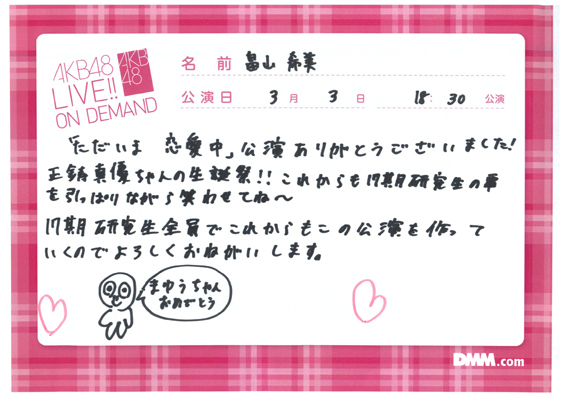 AKB48
LIVE!!
ON DEMAND
AKB
48
名前 畠山 希美
公演日 3月 3日 18:30 公演
「ただいま 恋愛中」公演ありがとうございました!
正鋳真優ちゃんの生誕祭!!これからも17期研究生の事
を引っぱりながら笑わせてね〜
17期研究生全員でこれからもこの公演を作って
いくのでよろしくおねがいします。
まゆうちゃん
おめでとう
DMM.com